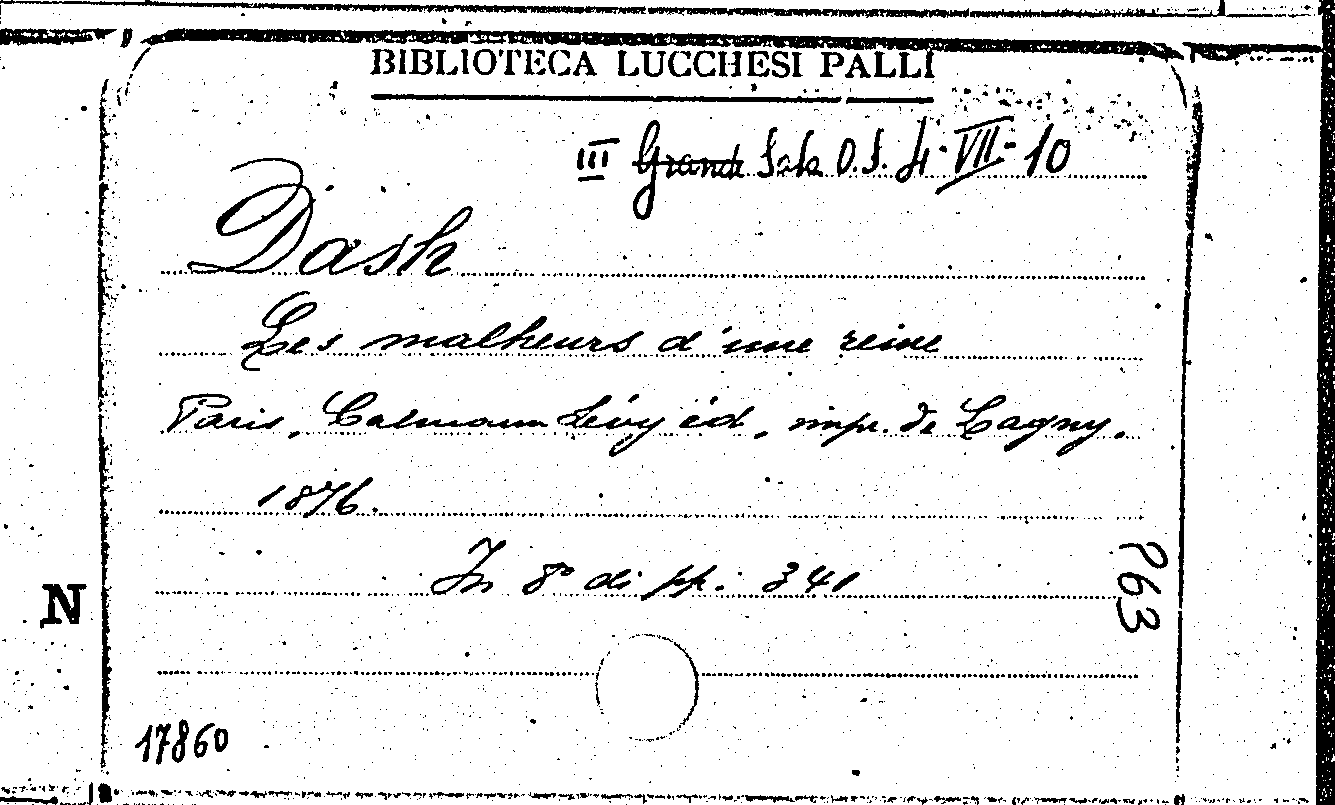 BIBLIOTECA LUCCHESI PALLI
III Grande Sala O. S. 4-VII-10
Dash
Les malheurs d'une reine
Paris, Calmann Lévy éd, impr. de Lagny.
1876.
In 8° di pp. 341
P63
N
17860